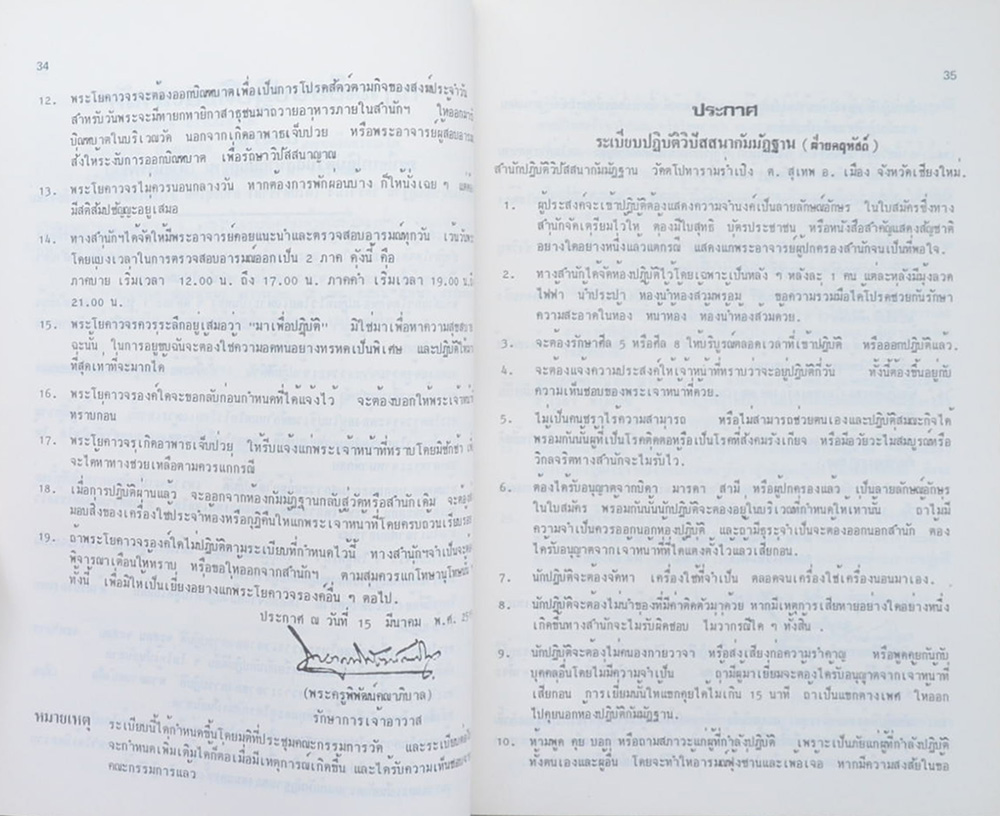 34
12. พระโยคาวจรจะต้องออกบิณฑบาตเพื่อเป็นการโปรดสัตว์ตามกิจของสงฆ์ประจำวัน
สำหรับวันพระจะมีทายกทายิกาสาธุชนมาถวายอาหารภายในสำนักฯ ให้ออกมารับ
บิณฑบาตในบริเวณวัด นอกจากเกิดอาพาธเจ็บป่วย หรือพระอาจารย์ผู้สอบอารมณ์
สั่งให้ระงับการออกบิณฑบาต เพื่อรักษาวิปัสสนาญาณ
13. พระโยคาวจรไม่ควรนอนกลางวัน หากต้องการพักผ่อนบ้าง ก็ให้นั่งเฉย ๆ แต่ต้อง
มีสติสัมปชัญญะอยู่เสมอ
14. ทางสำนักฯได้จัดให้มีพระอาจารย์คอยแนะนำและตรวจสอบอารมณ์ทุกวัน เว้นวันพระ
โดยแบ่งเวลาในการตรวจสอบอารมณ์ออกเป็น 2 ภาค ดังนี้ คือ
ภาคบ่าย เริ่มเวลา 12.00 น. ถึง 17.00 น. ภาคค่ำ เริ่มเวลา 19.00 น.
21.00 น.
15. พระโยคาวจรควรระลึกอยู่เสมอว่า "มาเพื่อปฏิบัติ" มิใช่มาเพื่อหาความสุขสบาย
ฉะนั้น ในการอยู่ขบฉันจะต้องใช้ความอดทนอย่างทรหดเป็นพิเศษ และปฏิบัติให้มาก
ที่สุดเท่าที่จะมากได้
16. พระโยคาวจรองค์ใดจะขอกลับก่อนกำหนดที่ได้แจ้งไว้ จะต้องบอกให้พระเจ้าหน้าที่
ทราบก่อน
17. พระโยคาวจรเกิดอาพาธเจ็บป่วย ให้รีบแจ้งแก่พระเจ้าหน้าที่ทราบโดยมิชักช้า
จะได้หาทางช่วยเหลือตามควรแก่กรณี
18. เมื่อการปฏิบัติผ่านแล้ว จะออกจากห้องกัมมัฏฐานกลับสู่วัดหรือสำนักเดิม จะต้อง
มอบสิ่งของเครื่องใช้ประจำห้องหรือกุฏิคืนให้แก่พระเจ้าหน้าที่โดยครบถ้วนเรียบร้อย
19. ถ้าพระโยคาวจรองค์ใดไม่ปฏิบัติตามระเบียบที่กำหนดไว้นี้ ทางสำนักฯจำเป็นจะต้อง
พิจารณาเตือนให้ทราบ หรือขอให้ออกจากสำนักฯ ตามสมควรแก่โทษานุโทษนั้น
ทั้งนี้ เพื่อมิให้เป็นเยี่ยงอย่างแก่พระโยคาวจรองค์อื่น ๆ ต่อไป.
ประกาศ ณ วันที่ 15 มีนาคม พ.ศ.
(พระครูพิพัฒน์คณาภิบาล)
รักษาการเจ้าอาวาส
หมายเหตุ ระเบียบนี้ได้กำหนดขึ้นโดยมติที่ประชุมคณะกรรมการวัด และระเบียบดังกล่าว
จะกำหนดเพิ่มเติมได้ก็ต่อเมื่อมีเหตุการณ์เกิดขึ้น และได้รับความเห็นชอบจาก
คณะกรรมการแล้ว
35
ประกาศ
ระเบียบปฏิบัติวิปัสสนากัมมัฏฐาน (ฝ่ายคฤหัสถ์)
สำนักปฏิบัติวิปัสสนากัมมัฏฐาน วัดตโปทารามร่ำเปิง ต. สุเทพ อ. เมือง จังหวัดเชียงใหม่.
1. ผู้ประสงค์จะเข้าปฏิบัติต้องแสดงความจำนงค์เป็นลายลักษณ์อักษร ในใบสมัครซึ่งทาง
สำนักจัดเตรียมไว้ให้ ต้องมีใบสุทธิ บัตรประชาชน หรือหนังสือสำคัญแสดงสัญชาติ
อย่างใดอย่างหนึ่งแล้วแต่กรณี แสดงแก่พระอาจารย์ผู้ปกครองสำนักจนเป็นที่พอใจ.
2. ทางสำนักได้จัดห้องปฏิบัติไว้โดยเฉพาะเป็นหลัง ๆ หลังละ 1 คน แต่ละหลังมีมุ้งลวด
ไฟฟ้า น้ำประปา ห้องน้ำห้องส้วมพร้อม ขอความร่วมมือได้โปรดช่วยกันรักษา
ความสะอาดในห้อง หน้าห้อง ห้องน้ำห้องส้วมด้วย.
3. จะต้องรักษาศีล 5 หรือศีล 8 ให้บริบูรณ์ตลอดเวลาที่เข้าปฏิบัติ หรือออกปฏิบัติแล้ว.
4. จะต้องแจ้งความประสงค์ให้เจ้าหน้าที่ทราบว่าจะอยู่ปฏิบัติกี่วัน ทั้งนี้ต้องขึ้นอยู่กับ
ความเห็นชอบของพระเจ้าหน้าที่ด้วย.
5. ไม่เป็นคนชราไร้ความสามารถ หรือไม่สามารถช่วยตนเองและปฏิบัติสมณะกิจได้
พร้อมกันนั้นผู้ที่เป็นโรคติดต่อหรือเป็นโรคที่สังคมรังเกียจ หรือมีอวัยวะไม่สมบูรณ์หรือ
วิกลจริตทางสำนักจะไม่รับไว้.
6. ต้องได้รับอนุญาตจากบิดา มารดา สามี หรือผู้ปกครองแล้ว เป็นลายลักษณ์อักษร
ในใบสมัคร พร้อมกันนั้นนักปฏิบัติจะต้องอยู่ในบริเวณที่กำหนดให้เท่านั้น ถ้าไม่มี
ความจำเป็นควรออกนอกห้องปฏิบัติ และถ้ามีธุระจำเป็นจะต้องออกนอกสำนัก ต้อง
ได้รับอนุญาตจากเจ้าหน้าที่ที่ได้แต่งตั้งไว้แล้วเสียก่อน.
7. นักปฏิบัติจะต้องจัดหา เครื่องใช้ที่จำเป็น ตลอดจนเครื่องใช้เครื่องนอนมาเอง.
8. นักปฏิบัติจะต้องไม่นำของที่มีค่าติดตัวมาด้วย หากมีเหตุการเสียหายอย่างใดอย่างหนึ่ง
เกิดขึ้นทางสำนักจะไม่รับผิดชอบ ไม่ว่ากรณีใด ๆ ทั้งสิ้น.
9. นักปฏิบัติจะต้องไม่คนองกายวาจา หรือส่งเสียงก่อความรำคาญ หรือพูดคุยกันกับ
บุคคลอื่นโดยไม่มีความจำเป็น ถ้ามีผู้มาเยี่ยมจะต้องได้รับอนุญาตจากเจ้าหน้าที่
เสียก่อน การเยี่ยมนั้นให้แขกคุยได้ไม่เกิน 15 นาที ถ้าเป็นแขกต่างเพศ ให้ออก
ไปคุยนอกห้องปฏิบัติกัมมัฏฐาน.
10. ห้ามพูด คุย บอก หรือถามสภาวะแก่ผู้ที่กำลังปฏิบัติ เพราะเป็นภัยแก่ผู้ที่กำลังปฏิบัติ
ทั้งตนเองและผู้อื่น โดยจะทำให้อารมณ์ฟุ้งซ่านและเพ้อเจ้อ หากมีความสงสัยในข้อ